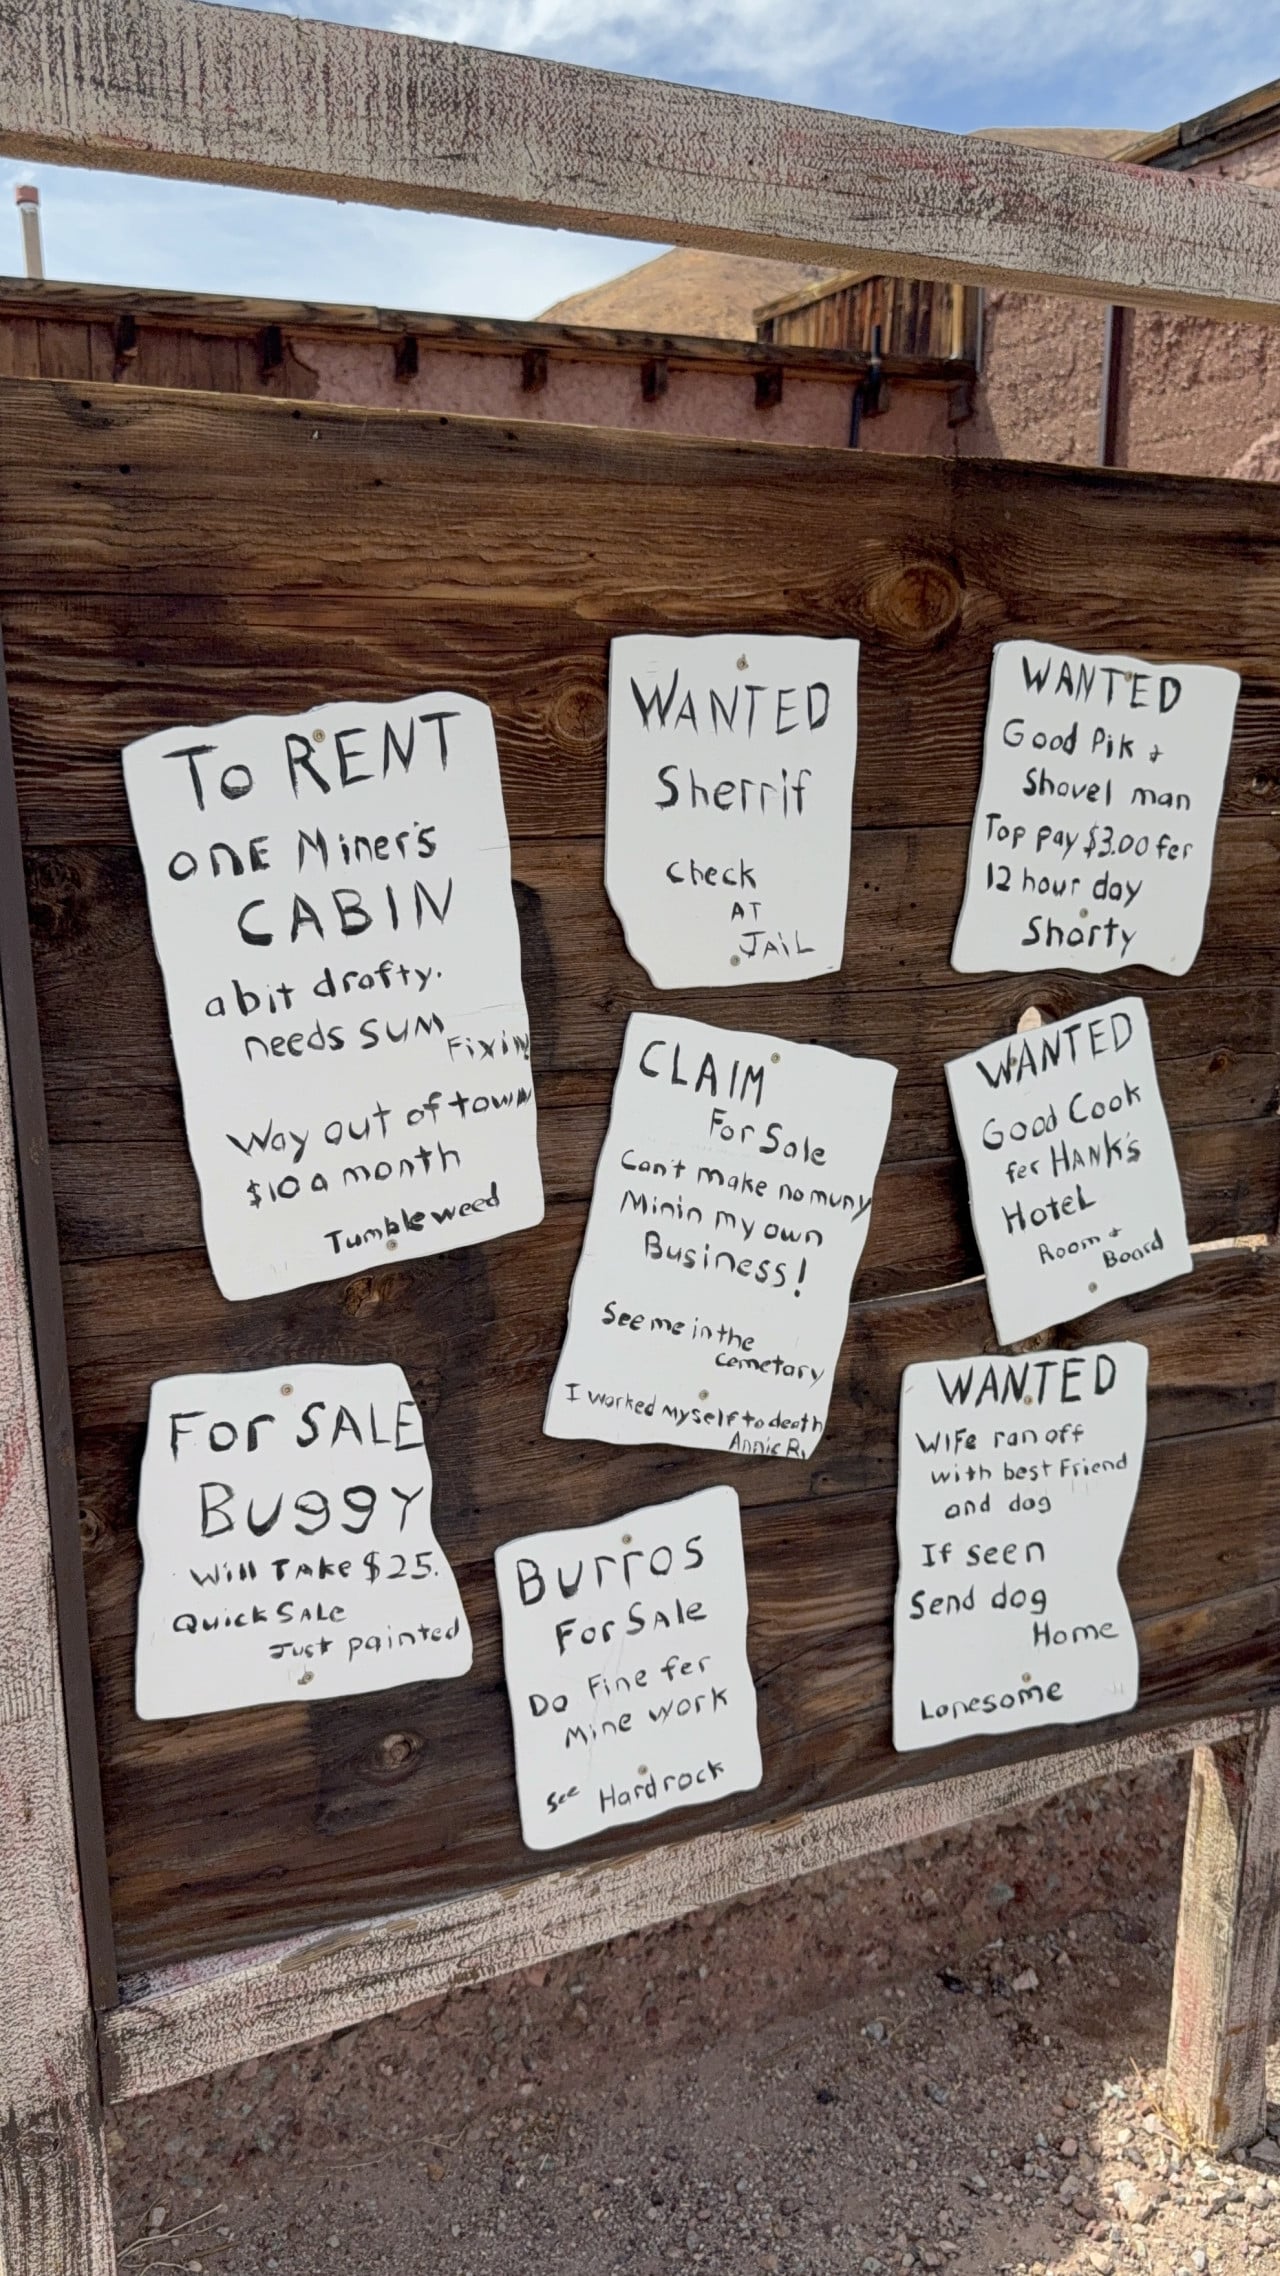 To RENT
ONE Miner's
CABIN
a bit drafty.
needs SUM
Fixin
Way out of town
$10 a month
Tumbleweed
WANTED
Sherrif
check
AT
JAIL
WANTED
Good Pik +
Shovel man
Top pay $3.00 fer
12 hour day
Shorty
CLAIM
For Sale
Can't make no muny
Minin my own
Business!
See me in the
cemetary
I worked myself to death
Annie R.
WANTED
Good Cook
fer HANK'S
HoteL
Room +
Board
For SALE
BuggY
Will TAKE $25.
Quick SALe
Just painted
Burros
For SAle
Do Fine fer
Mine work
See Hardrock
WANTED
WIFe ran off
with best Friend
and dog
If seen
Send dog
Home
Lonesome